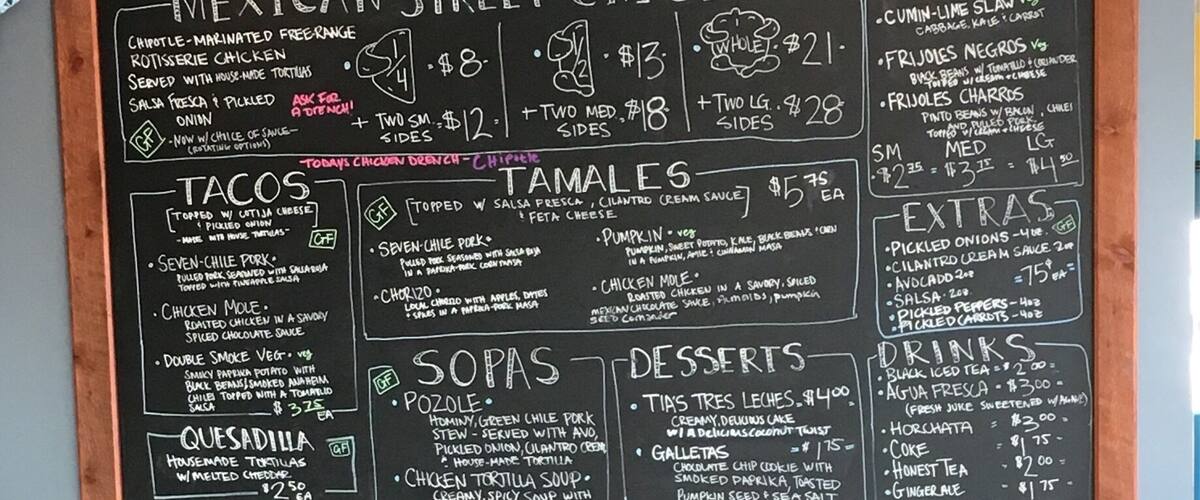 MEXICAN STREET
CHIPOTLE-MARINATED FREE-RANGE
ROTISSERIE CHICKEN
SERVED WITH HOUSE-MADE TORTILLAS
SALSA FRESCA & PICKLED
ONION
ASK FOR
A DRENCH!
GF
-NOW W/ CHOICE OF SAUCE-
(ROTATING OPTIONS)
1/4 - $8-
+ TWO SM. SIDES -$12
1/2 - $13-
+ TWO MED. SIDES $18-
WHOLE - $21-
+ TWO LG. SIDES - $28-
TODAYS CHICKEN DRENCH - Chipotle
TACOS
[TOPPED W/ COTIJA CHEESE
& PICKLED ONION]
-MADE WITH HOUSE TORTILLAS-
GF
• SEVEN-CHILE PORK •
PULLED PORK SEASONED WITH SALSA ROJA
TOPPED WITH PINEAPPLE SALSA
• CHICKEN MOLE •
ROASTED CHICKEN IN A SAVORY
SPICED CHOCOLATE SAUCE
• DOUBLE SMOKE VEG • veg
SMOKY PAPRIKA POTATO WITH
BLACK BEANS/SMOKED ANAHEIM
CHILES TOPPED WITH A TOMATILLO
SALSA
$3.25 EA
QUESADILLA
GF
HOUSEMADE TORTILLAS
W/ MELTED CHEDDAR
$2.50
EA
TAMALES
$5.75 EA
GF
[TOPPED W/ SALSA FRESCA, CILANTRO CREAM SAUCE
& FETA CHEESE]
• SEVEN-CHILE PORK •
PULLED PORK SEASONED WITH SALSA ROJA
IN A PAPRIKA-PORK CORN MASA
• CHORIZO •
LOCAL CHORIZO WITH APPLES, DATES
& SPICES IN A PAPRIKA-PORK MASA
• PUMPKIN • veg
PUMPKIN, SWEET POTATO, KALE, BLACK BEANS & CORN
IN A PUMPKIN, & CINNAMON MASA
• CHICKEN MOLE •
ROASTED CHICKEN IN A SAVORY, SPICED
MEXICAN CHOCOLATE SAUCE, Almonds, pumpkin
SEED
SOPAS
GF
• POZOLE •
HOMINY, GREEN CHILE PORK
STEW - SERVED WITH AVO,
PICKLED ONION, CILANTRO CREAM
& HOUSE-MADE TORTILLA
• CHICKEN TORTILLA SOUP •
CREAMY, SPICY SOUP WITH
DESSERTS
• TIA'S TRES LECHES - $4.00
CREAMY, DELICIOUS CAKE
W/ A Delicious Coconut TWIST
• GALLETAS - $1.75 -
CHOCOLATE CHIP COOKIE WITH
SMOKED PAPRIKA, TOASTED
PUMPKIN SEED & SEA SALT
• CUMIN-LIME SLAW veg
CABBAGE, KALE & CARROT
• FRIJOLES NEGROS veg
BLACK BEANS W/ TOMATILLO & CORIANDER
TOPPED W/ CREAM & CHEESE
• FRIJOLES CHARROS
PINTO BEANS W/ BACON, CHILES
AND PULLED PORK
TOPPED W/ CREAM & CHEESE
SM MED LG
$2.35 = $3.75 = $4.50
EXTRAS
GF
• PICKLED ONIONS - 4oz.
• CILANTRO CREAM SAUCE 2oz
• AVOCADO 2oz
• SALSA - 2oz.
= 75¢ EA =
• PICKLED PEPPERS - 4oz
• PICKLED CARROTS - 4oz
DRINKS
• BLACK ICED TEA = $2.00 =
• AGUA FRESCA - $3.00 -
(FRESH JUICE SWEETENED W/ AGAVE)
• HORCHATA - $3.00 -
• COKE - $1.75 -
• HONEST TEA - $2.00 -
• GINGER ALE - $1.75 -